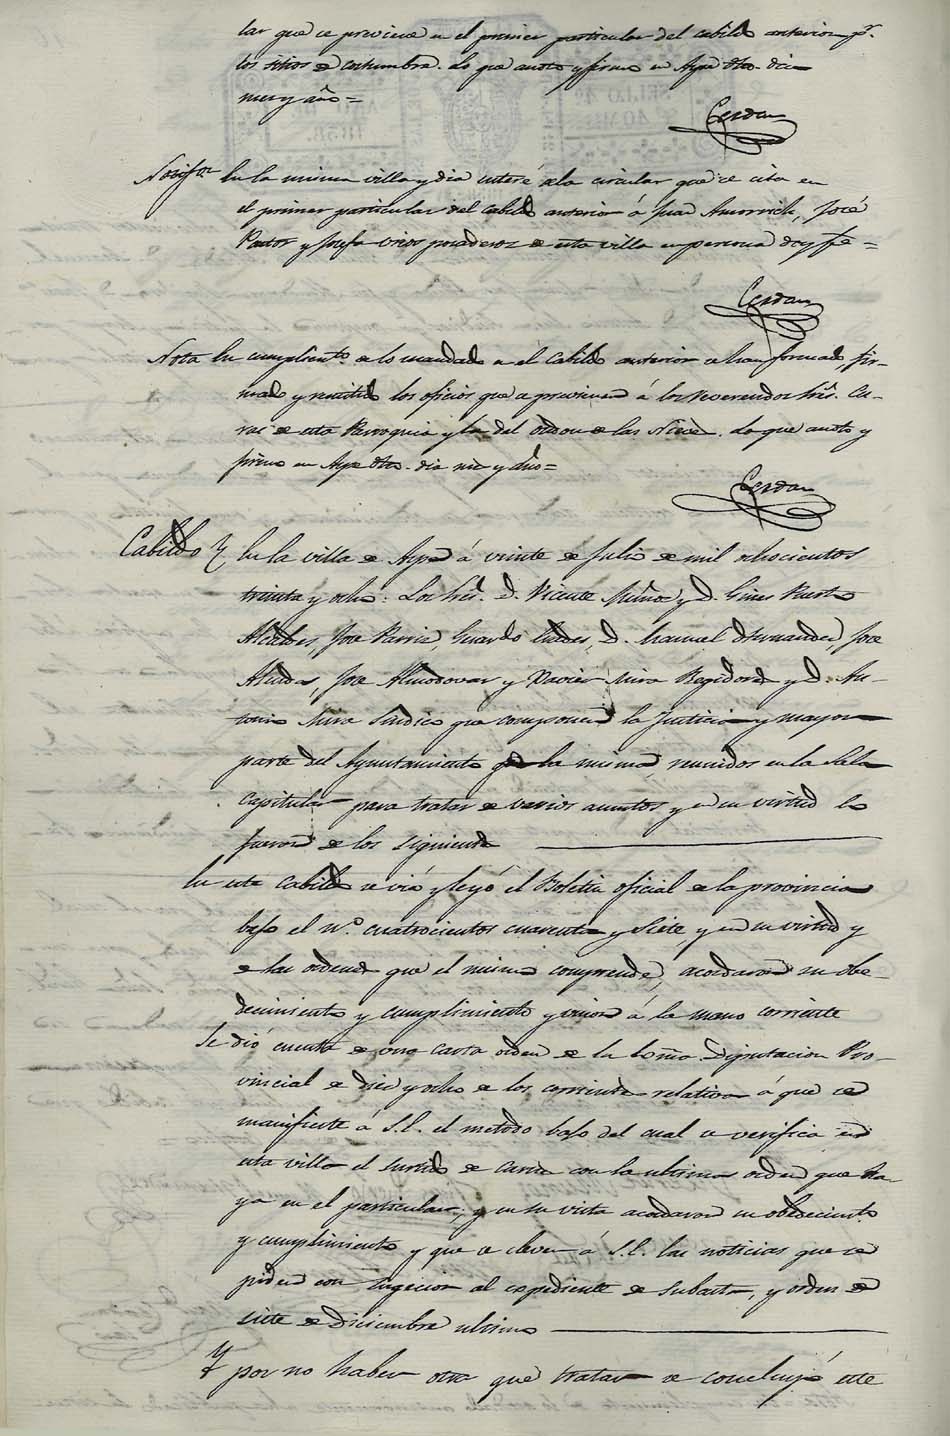 lar que se previene en el primer particular del cabildo anterior pr.
los sitios de costumbre. Lo que anoto y firmo en Aspe dho. dia
mes y año=
Cerdan
Notifon. En la misma villa y dia enteré de la circular que se cita en
el primer particular del cabildo anterior á Juan, José
Pastor y Josefa posaderos de esta villa en persona doy fe=
Cerdan
Nota En cumplimto. de lo mandado en el Cabildo anterior se han formado, fir-
mado y remitido los oficios que se previenen á los reverendos Sres. Cu-
ras de esta Parroquia y la del de las Nieves. Lo que anoto y
firmo en Aspe dho. dia mes y año=
Cerdan
Cabildo Y En la villa de Aspe á veinte de Julio de mil ochocientos
treinta y ocho: Los Sres. D. Vicente Muñoz y D. Gines
Alcaldes, Jose, D. Manuel Hernandez, Jose
Alcaldes, Jose Almodovar y Xavier Mira Regidores y D. An-
tonio Mira Sindico que componen la Justicia y mayor
parte del Ayuntamiento de la misma, reunidos en la Sala
Capitular para tratar de varios asuntos y en su virtud lo
fueron de los siguientes
En este Cabildo se vió y leyó el Boletin oficial de la provincia
bajo el nº. cuatrocientos cuarenta y siete, y en su virtud y
de las ordenes que el mismo comprende, acordaron su obe-
decimiento y cumplimiento y union á la mano corriente
Se dió cuenta de una carta orden de la Exma. Diputacion Pro-
vincial de diez y ocho de los corrientes relativa á que se
manifieste á S.E. el metodo bajo del cual se verifica en
esta villa el surtido de carnes con la ultima orden que ha-
ya en el particular; y en su vista acordaron su obedecimto.
y cumplimiento y que se eleven á S.E. las noticias que se
piden con sugecion al expediente de subasta, y orden de
siete de Diciembre ultimo
Y por no haber otra que tratar se concluyó este